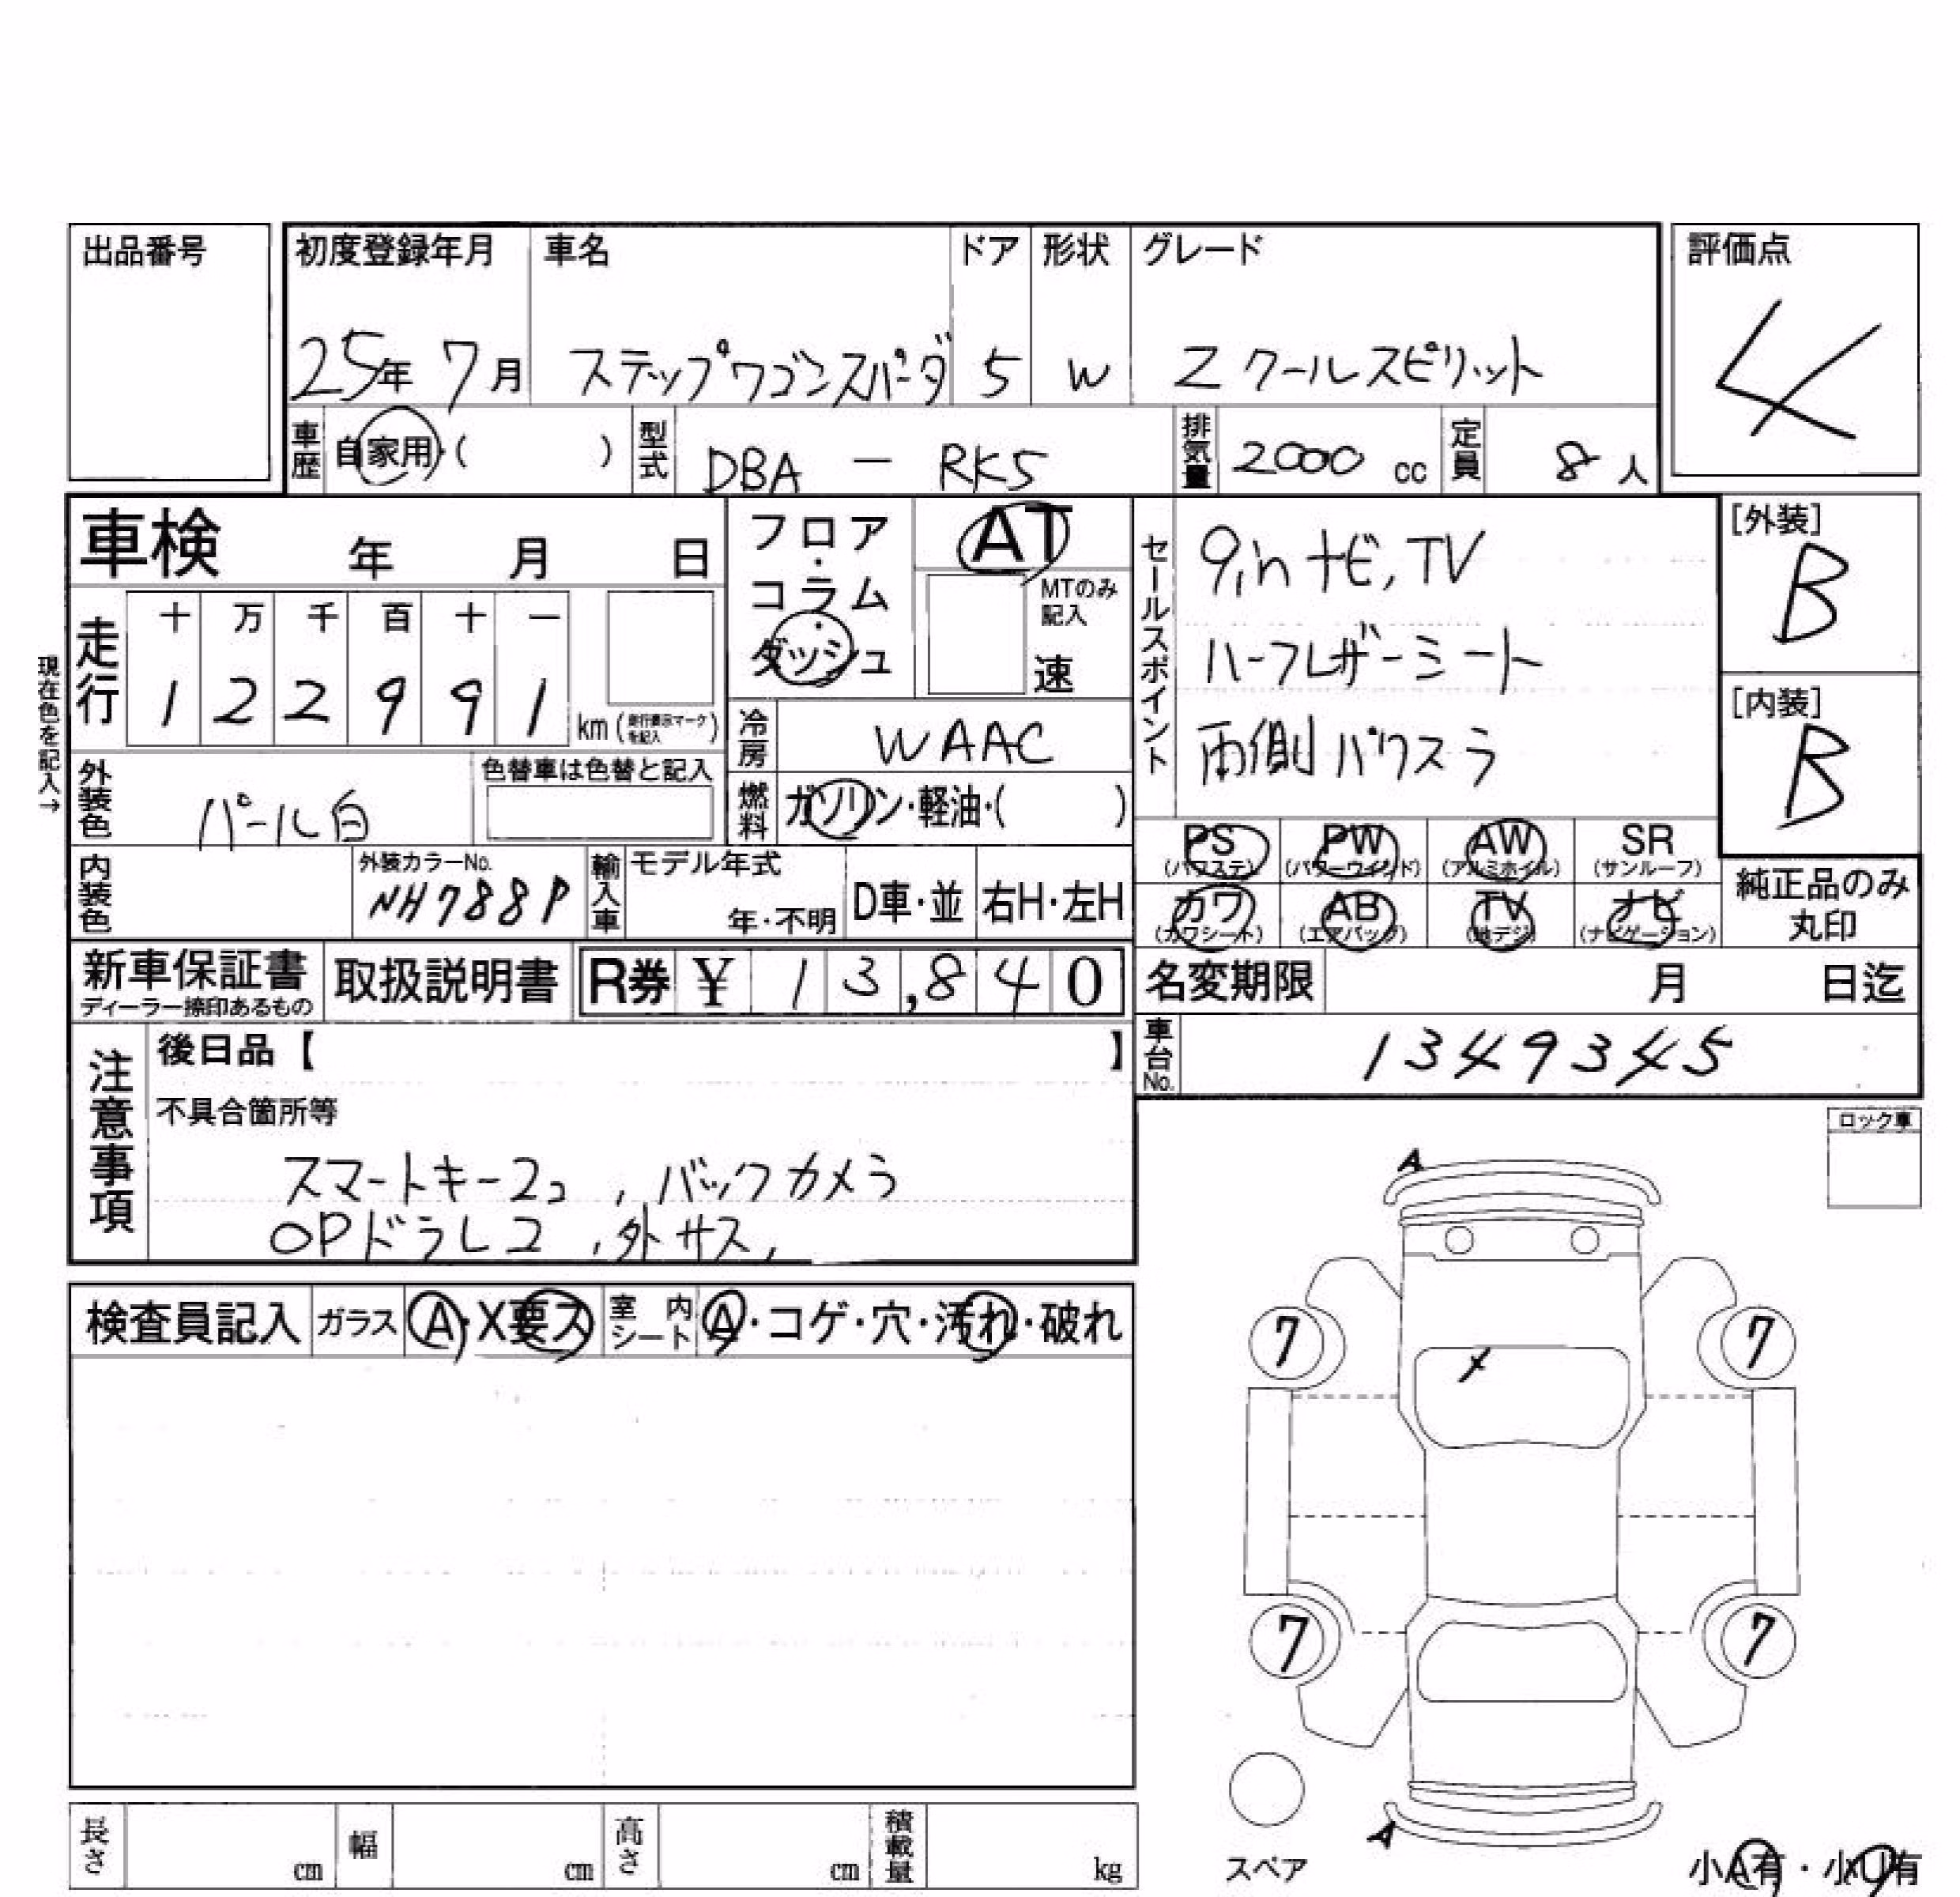 出品番号
初度登録年月 車名 ドア 形状 グレード
25年 7月 ステップワゴンスパーダ 5 W Z クールスピリット
評価点
4
車歴 自家用・( ) 型式 DBA - RK5 排気量 2000 cc 定員 8 人
車検 年 月 日
フロア・コラム・ダッシュ
AT
MTのみ記入
速
セールスポイント
9inナビ, TV
ハーフレザーシート
両側パワスラ
[外装]
B
[内装]
B
現在色を記入→
走行 十 万 千 百 十 一
1 2 2 9 9 1 km (走行表示マークを記入)
冷房 WAAC
外装色 パール白 色替車は色替と記入
燃料 ガソリン・軽油・( )
PS (パワステ) PW (パワーウインド) AW (アルミホイル) SR (サンルーフ)
カワ (カワシート) AB (エアバッグ) TV (地デジ) ナビ (ナビゲーション)
純正品のみ
丸印
内装色 外装カラーNo. NH788P 輸入車 モデル年式 年・不明 D車・並 右H・左H
新車保証書 ディーラー捺印あるもの 取扱説明書 R券 ¥ 13,840
名変期限 月 日迄
車台No. 1349345
注意事項
後日品【 】
不具合箇所等
スマートキー2コ , バックカメラ
OPドラレコ , 外サス,
ロック車
検査員記入 ガラス A・X要ス 室内シート A・コゲ・穴・汚れ・破れ
A
7 7
X
7 7
A
スペア
小A有・小U有
長さ cm 幅 cm 高さ cm 積載量 kg